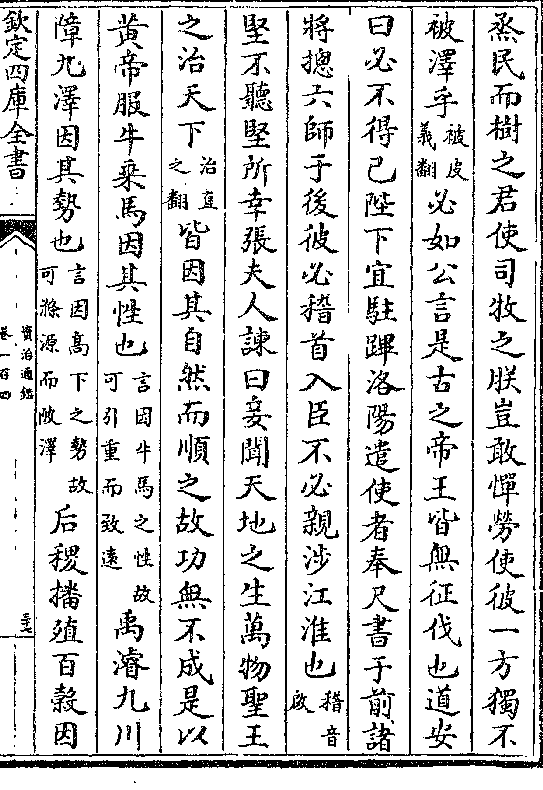 烝民而樹之君使司牧之朕豈敢憚勞使彼一方獨不
被澤乎被皮義翻必如公言是古之帝王皆無征伐也道安
曰必不得已陛下宜駐蹕洛陽遣使者奉尺書于前諸
將摠六師于後彼必稽首入臣不必親涉江淮也稽音啟
堅不聽堅所幸張夫人諫曰妾聞天地之生萬物聖王
之治天下治直之翻皆因其自然而順之故功無不成是以
黃帝服牛乗馬因其性也言因牛馬之性故可引重而致遠禹濬九川
障九澤因其勢也言因高下之勢故可滌源而陂澤后稷播殖百穀因
欽定四庫全書
資治通鑑
卷一百四
三七